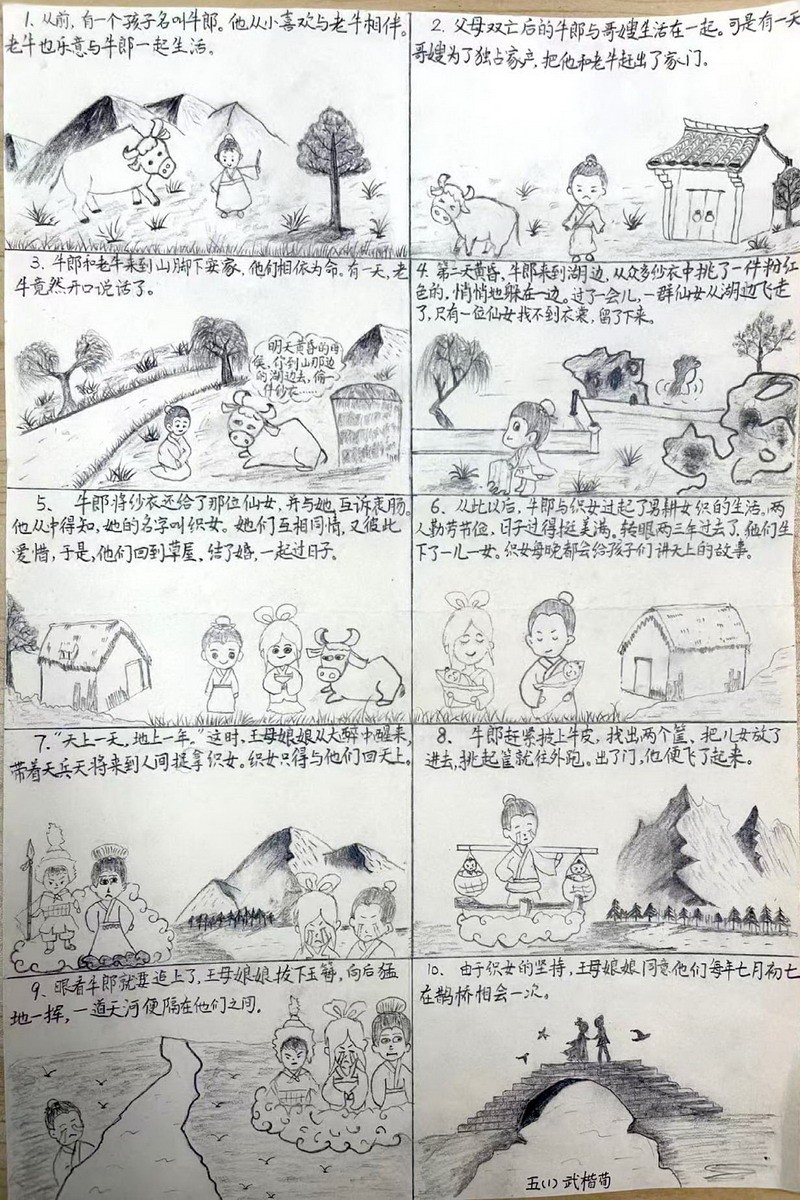 1. 从前，有一个孩子名叫牛郎。他从小喜欢与老牛相伴。
老牛也乐意与牛郎一起生活。
2. 父母双亡后的牛郎与哥嫂生活在一起。可是有一天
哥嫂为了独占家产，把他和老牛赶出了家门。
3. 牛郎和老牛来到山脚下安家，他们相依为命。有一天，老
牛竟然开口说话了。
明天黄昏的时
候，你到山那边
的湖边去，偷一
件纱衣……
4. 第二天黄昏，牛郎来到湖边，从众多纱衣中挑了一件粉红
色的，悄悄地躲在一边。过了一会儿，一群仙女从湖边飞走
了，只有一位仙女找不到衣裳，留了下来。
5. 牛郎将纱衣还给了那位仙女，并与她互诉衷肠。
他从中得知，她的名字叫织女。她们互相同情，又彼此
爱惜，于是，他们回到草屋、结了婚，一起过日子。
6. 从此以后，牛郎与织女过起了男耕女织的生活。两
人勤劳节俭，日子过得挺美满。转眼两三年过去了，他们生
下了一儿一女。织女每晚都会给孩子们讲天上的故事。
7. “天上一天，地上一年。”这时，王母娘娘从大醉中醒来，
带着天兵天将来到人间捉拿织女。织女只得与他们回天上。
8. 牛郎赶紧披上牛皮，找出两个筐、把儿女放了
进去，挑起筐就往外跑。出了门，他便飞了起来。
9. 眼看牛郎就要追上了，王母娘娘拔下玉簪，向后猛
地一挥，一道天河便隔在他们之间。
10. 由于织女的坚持，王母娘娘同意他们每年七月初七
在鹊桥相会一次。
五(1) 武楷荀